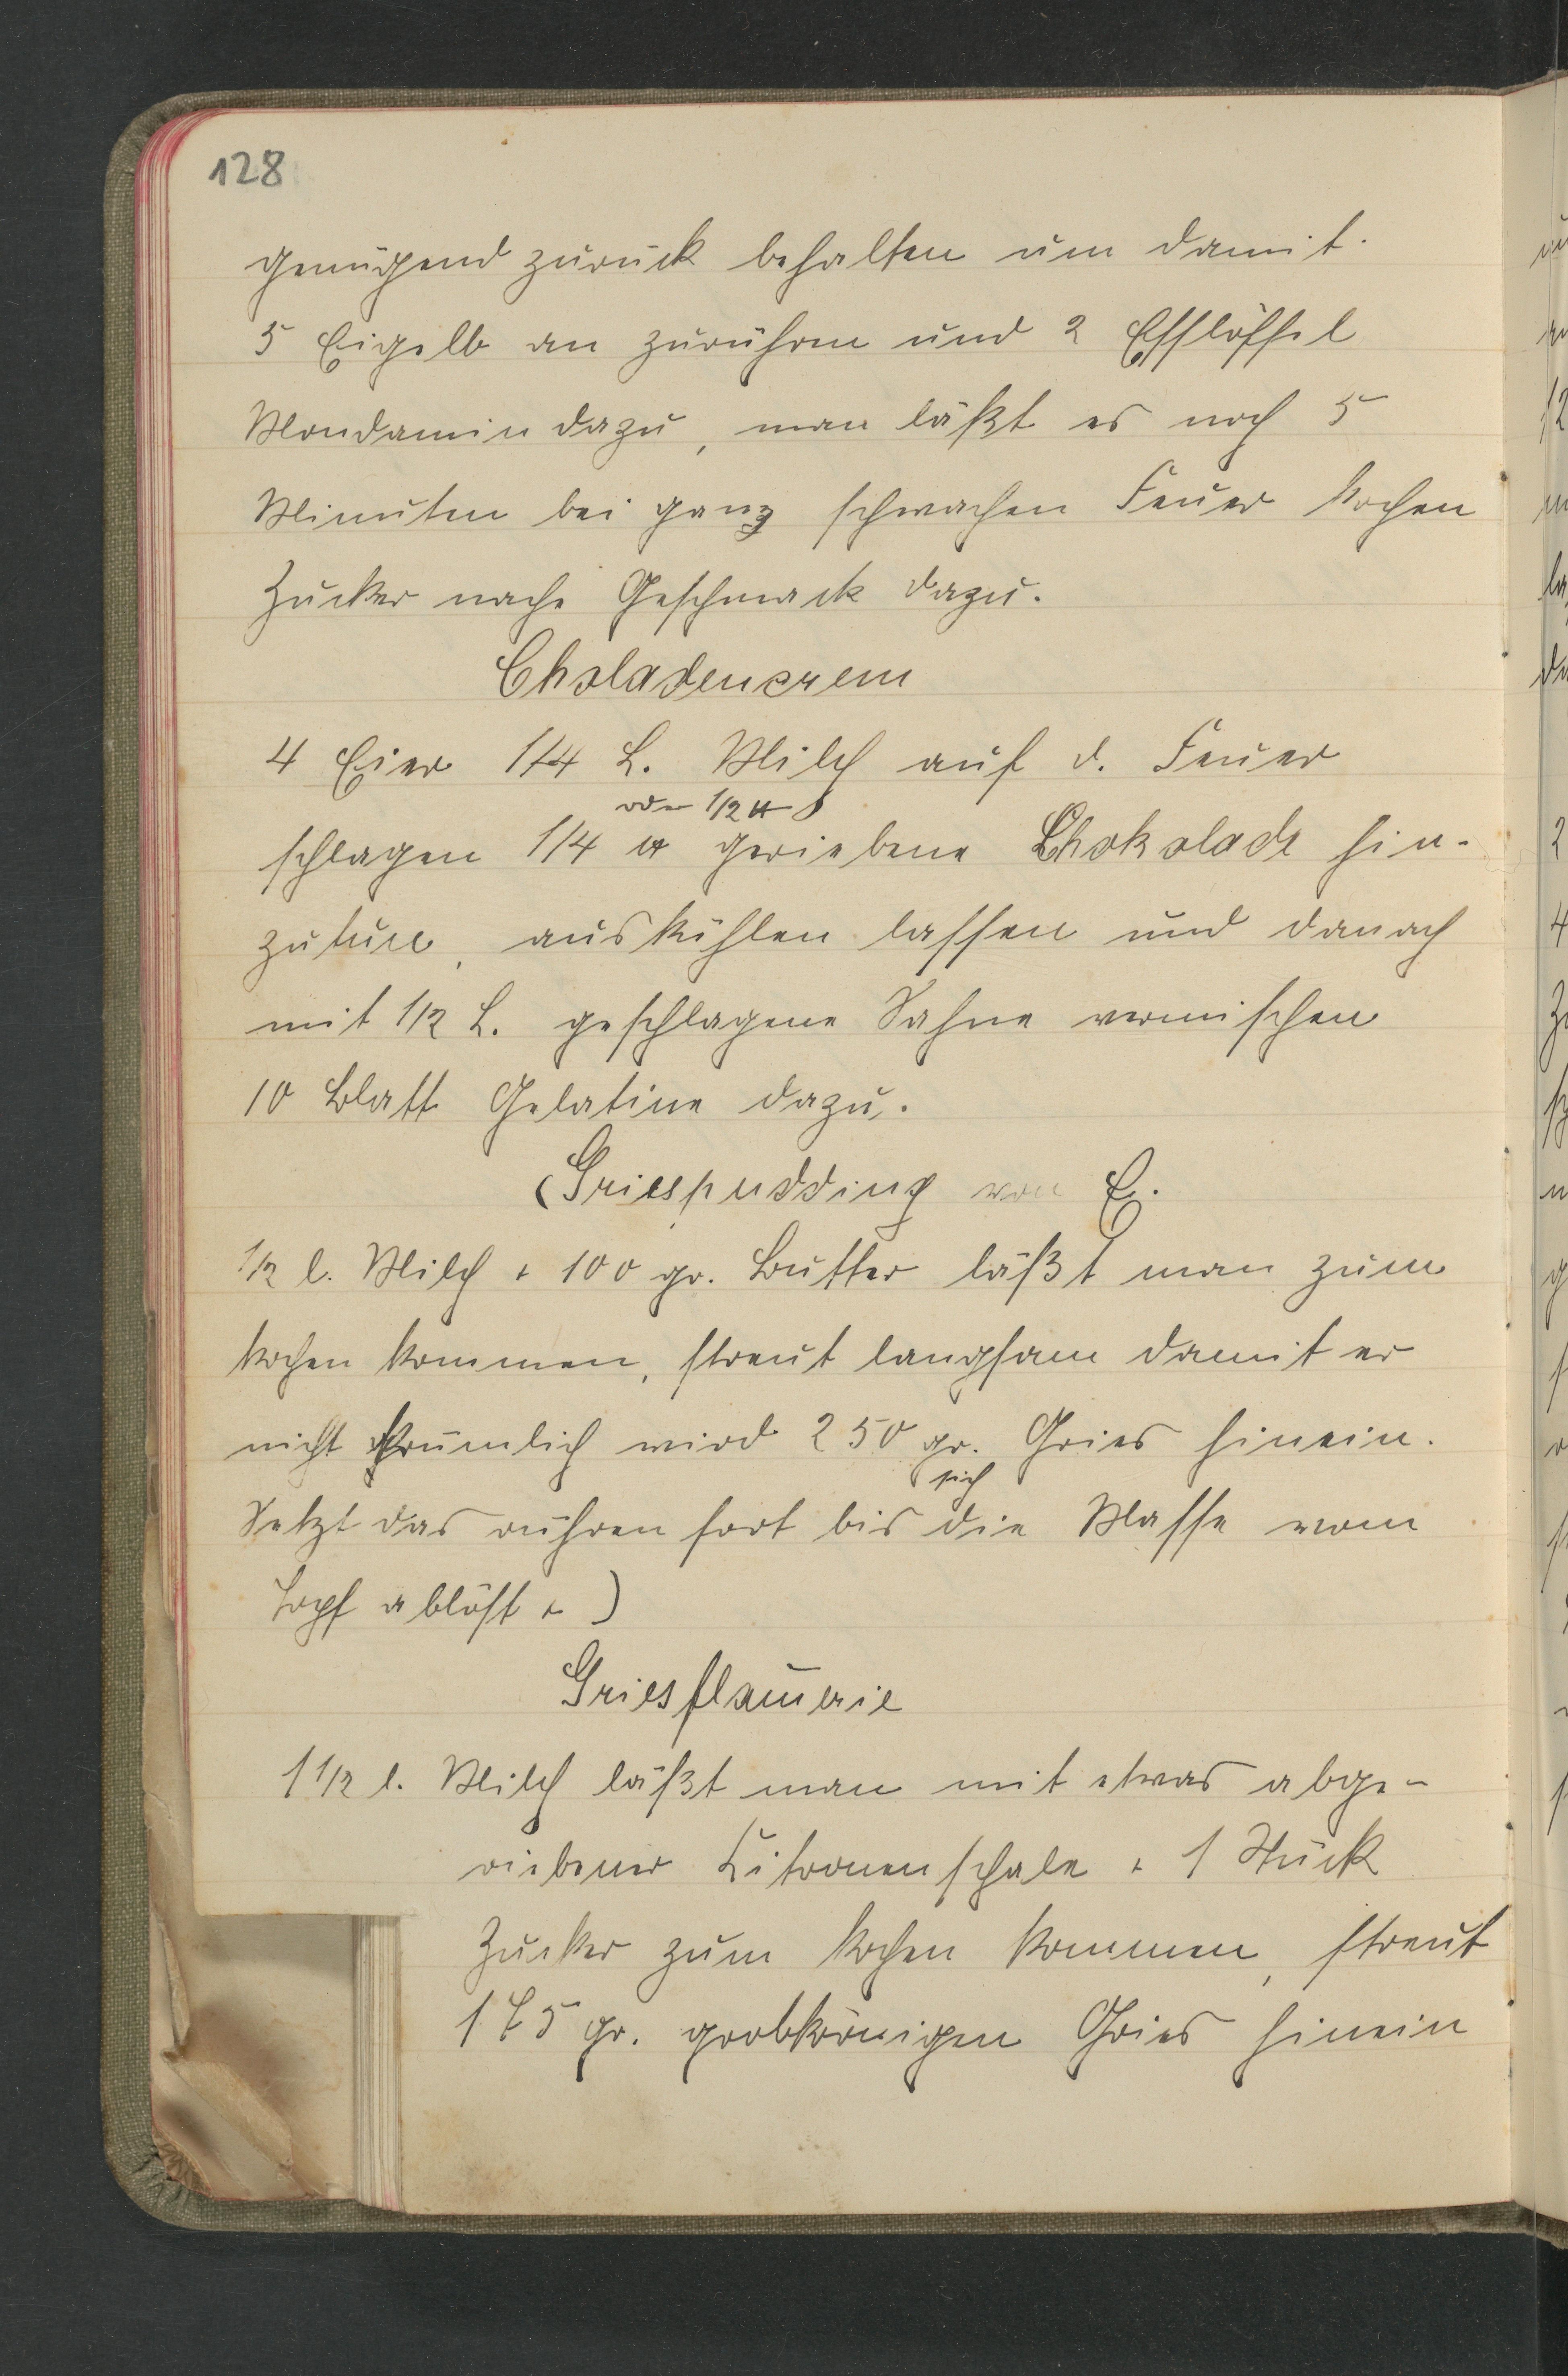 128
genügend zurück behalten um damit
5 Eigelb an zurühren und 2 Esslöffel
Mondamin dazu, man läßt es noch 5
Minuten bei ganz schwachen Feuer kochen
Zucker nach Geschmack dazu.
Choladencrem
4 Eier 1/4 L. Milch auf d. Feuer
oder 1/2 ℔
schlagen 1/4 ℔ geriebene Chokolade hin-
zutun, auskühlen lassen und danach
mit 1/2 L. geschlagene Sahne vermischen
10 Blatt Gelatine dazu.
(Griespudding von E.
1/2 l. Milch + 100 gr. Butter läßt man zum
kochen kommen, streut langsam damit er
nicht krümlich wird 250 gr. Gries hinein.
sich
Setzt das rühren fort bis die Masse vom
Topf ablöst + )
Griesflamerie
1 1/2 l. Milch läßt man mit etwas abge-
riebener Citronenschale + 1 Stück
Zucker zum kochen kommen, streut
175 gr. grobkörnigen Gries hinein